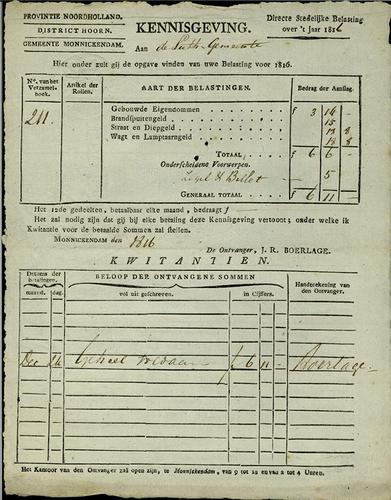 PROVINTIE NOORDHOLLAND.
DISTRICT HOORN.
GEMEENTE MONNICKENDAM.
KENNISGEVING.
Aan de Luth. Gemeente
Directe Stedelijke Belasting
over 't Jaar 1816
Hier onder zult gij de opgave vinden van uwe Belasting voor 1816.
No. van het Verzamelboek. Artikel der Rollen. AART DER BELASTINGEN. Bedrag der Aanslag.
211. Gebouwde Eigendommen f 3 14 -
Brandspuitengeld 15
Straat en Diepgeld 18 8
Wagt en Lamptaarngeld 18 8
TOTAAL f 6 6 -
Onderscheidene Voorwerpen.
Zegel & Billet - 5
GENERAAL TOTAAL f 6 11 -
Het 12de gedeelten, betaalbaar elke maand, bedraagt f
Het zal nodig zijn dat gij bij elke betaling deze Kennisgeving vertoont; onder welke ik
Kwitantie voor de betaalde Sommen zal stellen.
MONNICKENDAM den 1816
De Ontvanger, J. R. BOERLAGE.
KWITANTIEN.
Datums der betalingen. BELOOP DER ONTVANGENE SOMMEN Handtekening van den Ontvanger.
maand. dag. vol uit geschreven. in Cijffers.
Dec 24 Geheel voldaan f 6 11 - Boerlage.
Het Kantoor van den Ontvanger zal open zijn, te Monnickendam, van 9 tot 12 en van 2 tot 4 Uuren.